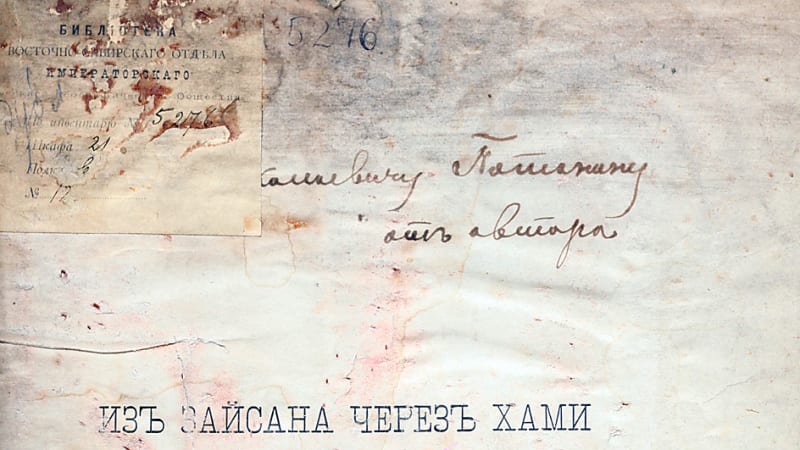 БИБЛІОТЕКА
5276.
ВОСТОЧНО-СИБИРСКАГО ОТДѢЛА
ИМПЕРАТОРСКАГО
Общества
По инвентарю № 5276
Шкафа 21
Полк
№ 12
колаевичу Потанину
отъ автора
ИЗЪ ЗАЙСАНА ЧЕРЕЗЪ ХАМИ